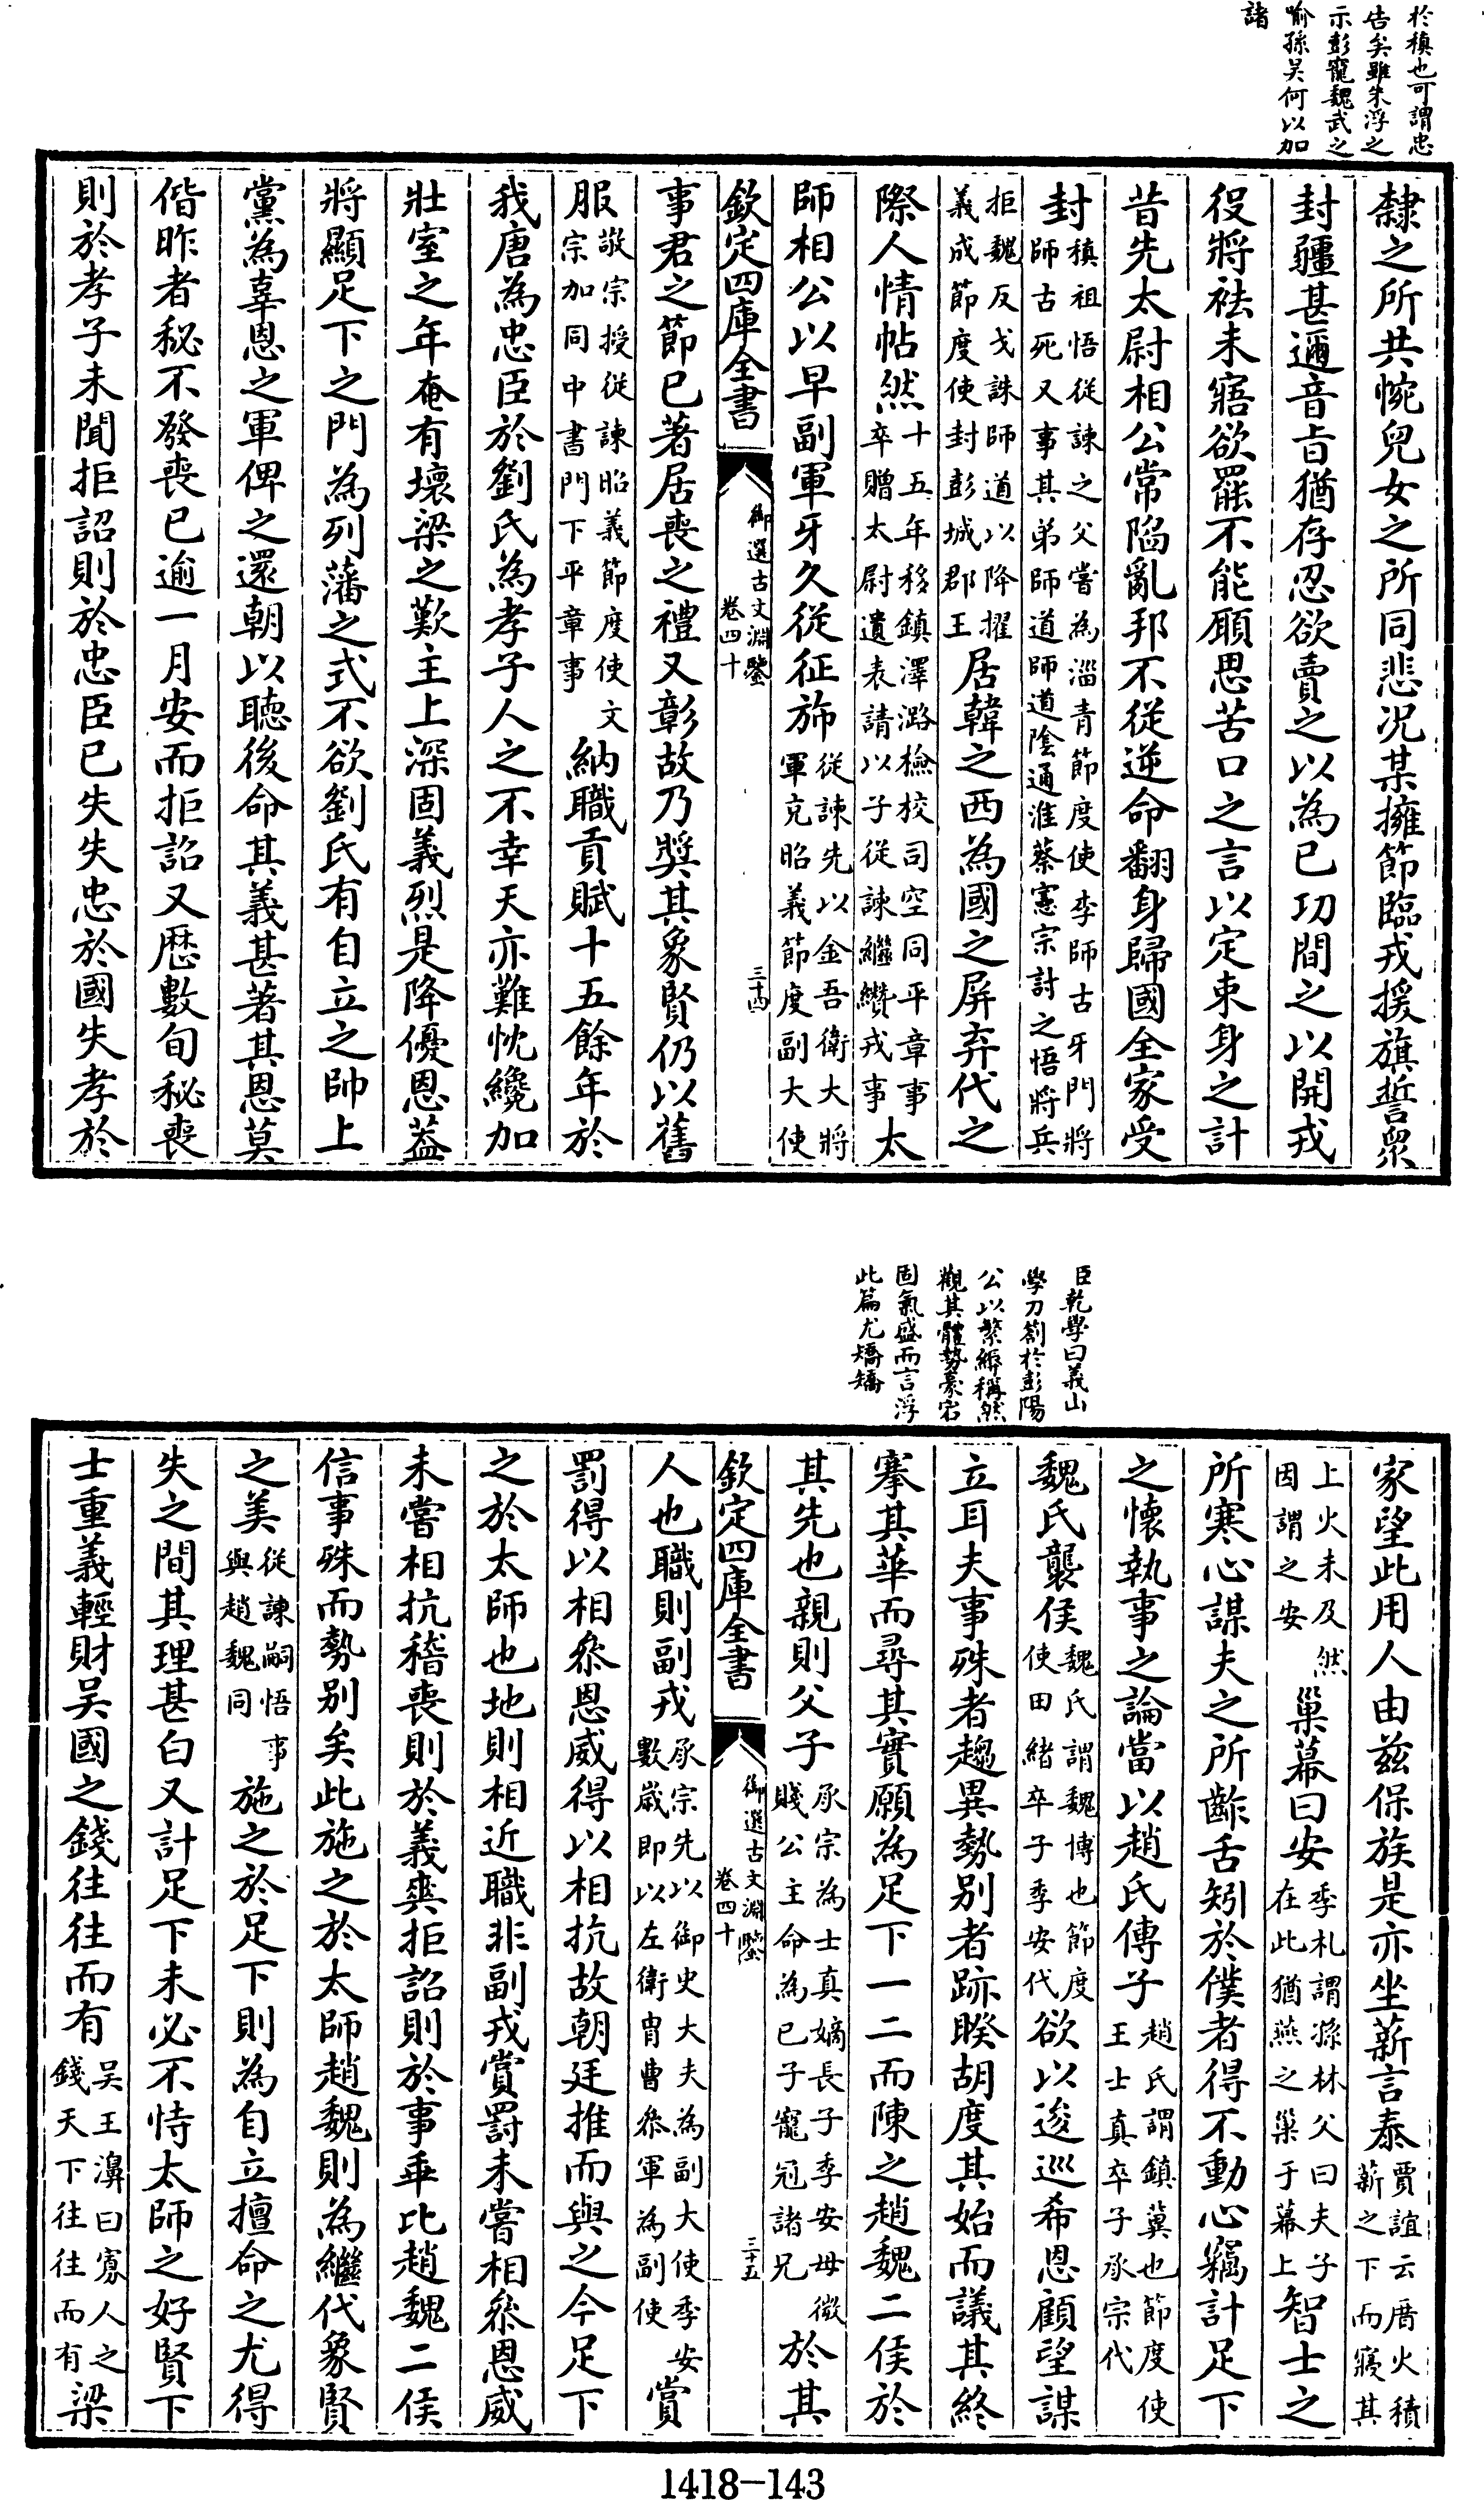 於稹也可謂忠
告矣雖朱浮之
示彭寵魏武之
喻孫吴何以加
諸
隸之所共惋兒女之所同悲况某擁節臨戎援旗誓衆
封疆甚邇音㫖猶存忍欲賣之以為已功間之以開戎
役將袪未寤欲罷不能願思苦口之言以定束身之計
昔先太尉相公常陷亂邦不從逆命翻身歸國全家受
封稹祖悟從諫之父嘗為淄青節度使李師古牙門將
師古死又事其弟師道師道隂通淮蔡憲宗討之悟將兵
拒魏反戈誅師道以降擢
義成節度使封彭城郡王居韓之西為國之屏弃代之
際人情帖然十五年移鎮澤潞檢校司空同平章事
卒贈太尉遺表請以子從諫繼纘戎事太
師相公以早副軍牙久從征斾從諫先以金吾衛大將
軍充昭義節度副大使
欽定四庫全書
御選古文淵鑒
卷四十
三十四
事君之節已著居喪之禮又彰故乃奬其象賢仍以舊
服敬宗授從諫昭義節度使文
宗加同中書門下平章事納職貢賦十五餘年於
我唐為忠臣於劉氏為孝子人之不幸天亦難忱纔加
壯室之年奄有壞梁之歎主上深固義烈是降優恩葢
將顯足下之門為列藩之式不欲劉氏有自立之帥上
黨為辜恩之軍俾之還朝以聽後命其義甚著其恩莫
偕昨者秘不發喪已逾一月安而拒詔又歴數旬秘喪
則於孝子未聞拒詔則於忠臣已失失忠於國失孝於
臣乾學曰義山
學刀劄於彭陽
公以繁縟稱然
觀其體勢豪宕
固氣盛而言浮
此篇尤矯矯
家望此用人由兹保族是亦坐薪言泰賈誼云厝火積
薪之下而寢其
上火未及然
因謂之安巢幕曰安季札謂孫林父曰夫子
在此猶燕之巢于幕上智士之
所寒心謀夫之所齚舌矧於僕者得不動心竊計足下
之懷執事之論當以趙氏傳子趙氏謂鎮冀也節度使
王士真卒子承宗代
魏氏襲侯魏氏謂魏博也節度
使田緒卒子季安代欲以逡巡希恩顧望謀
立耳夫事殊者趨異勢别者跡睽胡度其始而議其終
搴其華而尋其實願為足下一二而陳之趙魏二侯於
其先也親則父子承宗為士真嫡長子季安母微
賤公主命為已子寵冠諸兄於其
欽定四庫全書
御選古文淵鑒
卷四十
三十五
人也職則副戎承宗先以御史大夫為副大使季安
數嵗即以左衛胄曹叅軍為副使賞
罰得以相叅恩威得以相抗故朝廷推而與之今足下
之於太師也地則相近職非副戎賞罰未嘗相叅恩威
未嘗相抗稽喪則於義爽拒詔則於事乖比趙魏二侯
信事殊而勢别矣此施之於太師趙魏則為繼代象賢
之美從諫嗣悟事
與趙魏同施之於足下則為自立擅命之尤得
失之間其理甚白又計足下未必不恃太師之好賢下
士重義輕財吴國之錢往往而有吴王濞曰寡人之
錢天下往往而有梁
1418-143